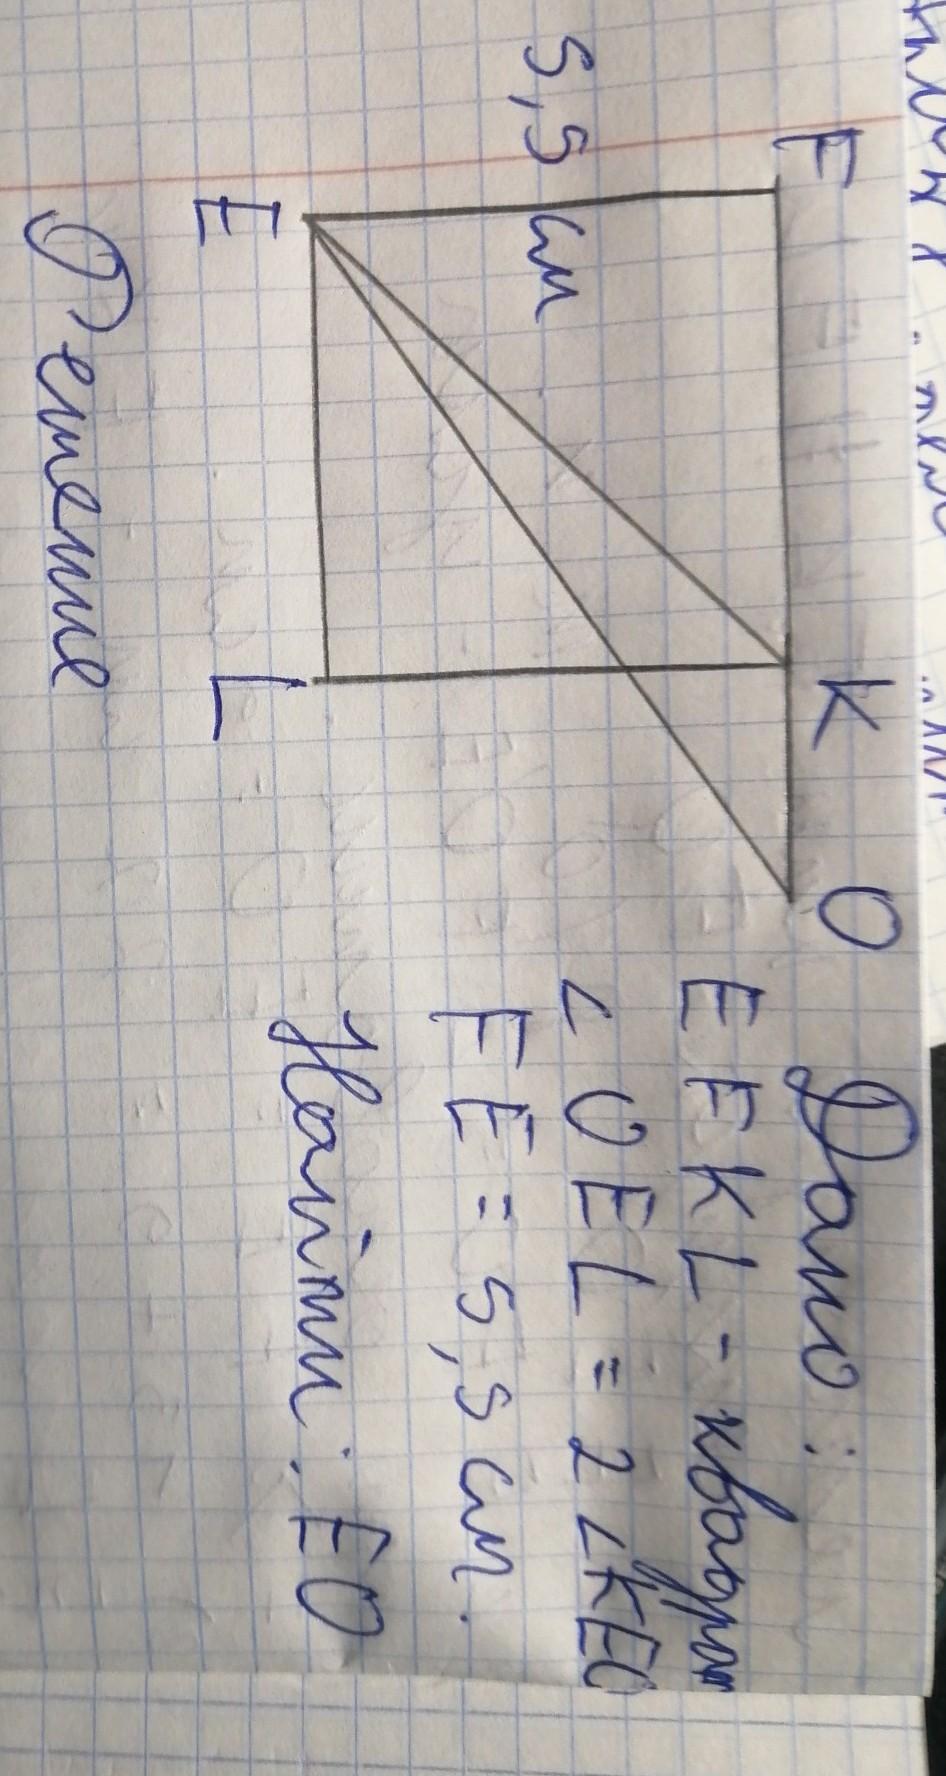 F
K
O
5,5 см
E
L
Дано:
EFKL - квадрат
∠OEL = 2∠KEO
FE = 5,5 см.
Найти: EO
Решение